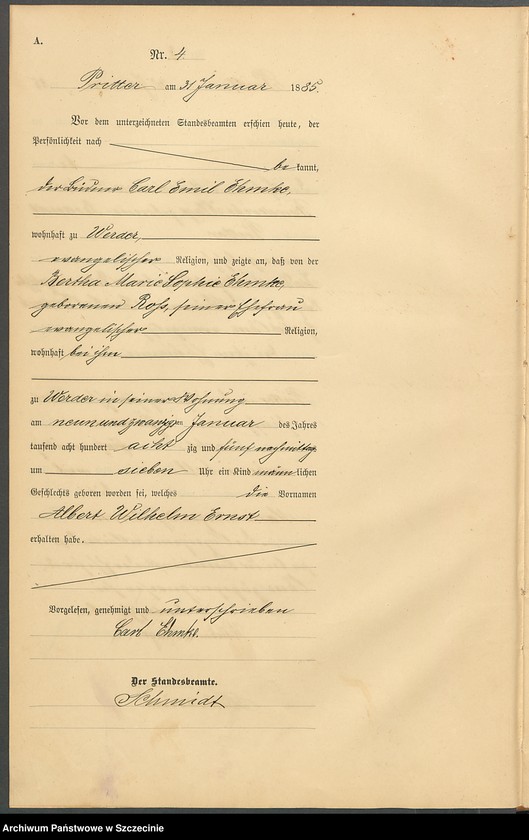 A.
Nr. 4.
Pritter am 31 Januar 1885.
Vor dem unterzeichneten Standesbeamten erschien heute, der
Persönlichkeit nach
bekannt,
der Büdner Carl Emil Ehmke,
wohnhaft zu Werder,
evangelischer Religion, und zeigte an, daß von der
Bertha Marie Sophie Ehmke,
geborenen Roß, seiner Ehefrau
evangelischer Religion,
wohnhaft bei ihm
zu Werder in seiner Wohnung
am neunundzwanzigsten Januar des Jahres
tausend acht hundert achtzig und fünf nachmittags
um sieben Uhr ein Kind männlichen
Geschlechts geboren worden sei, welches die Vornamen
Albert Wilhelm Ernst
erhalten habe.
Vorgelesen, genehmigt und unterschrieben
Carl Ehmke.
Der Standesbeamte.
Schmidt
Archiwum Państwowe w Szczecinie